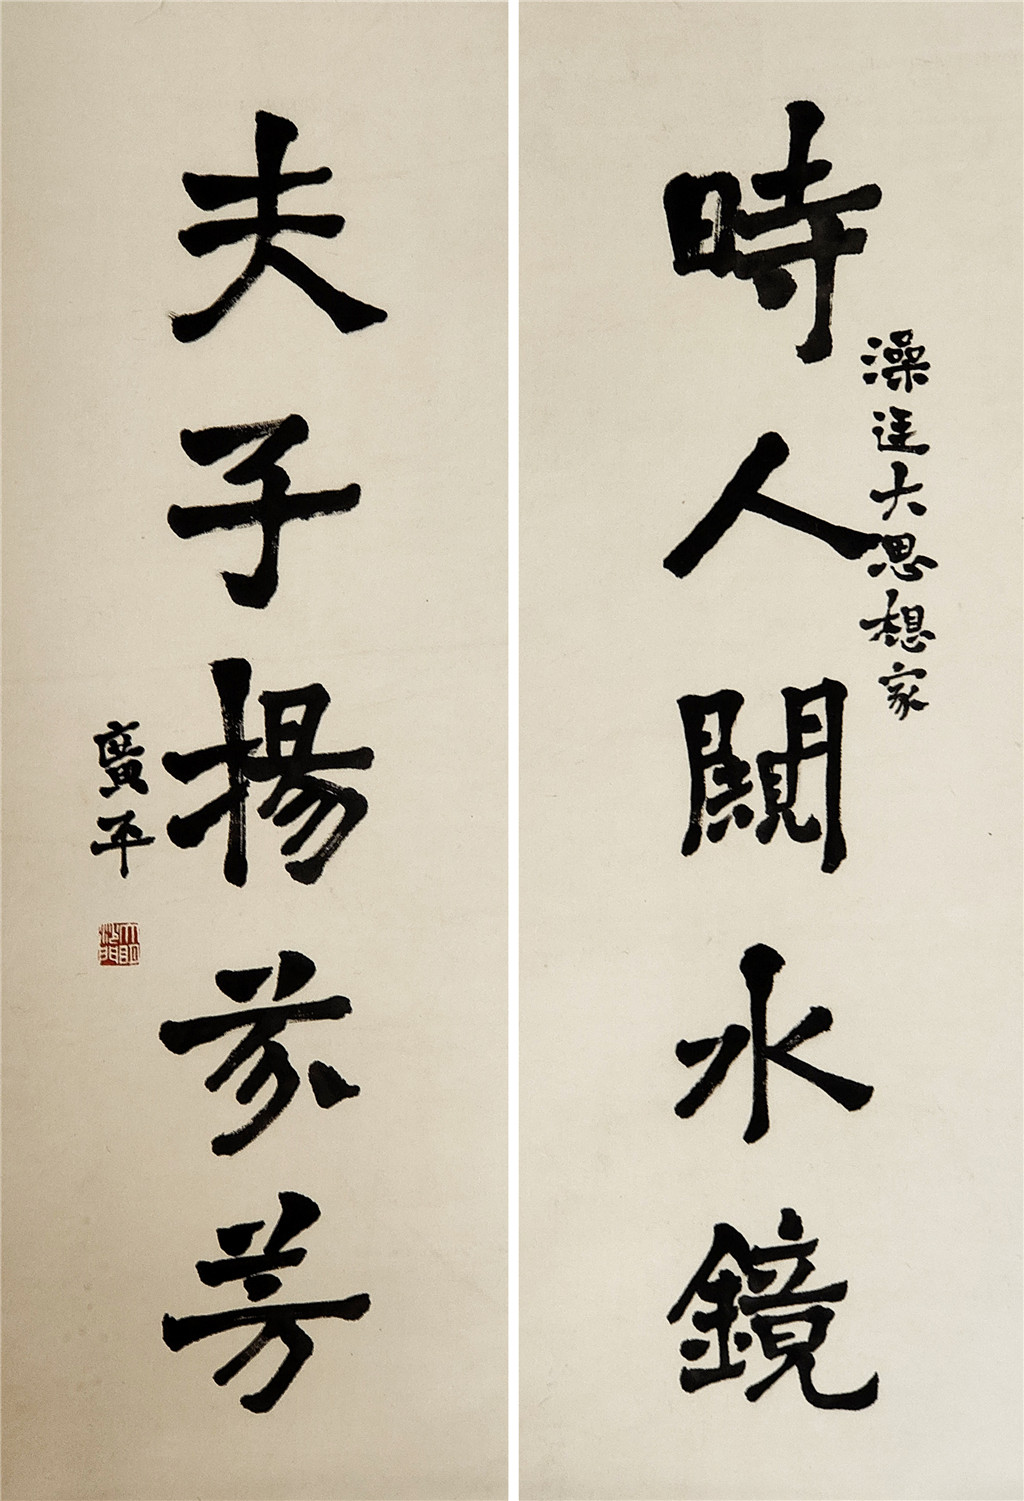 時人闚水鏡
澡大思想家
夫子揚芬芳
廣平